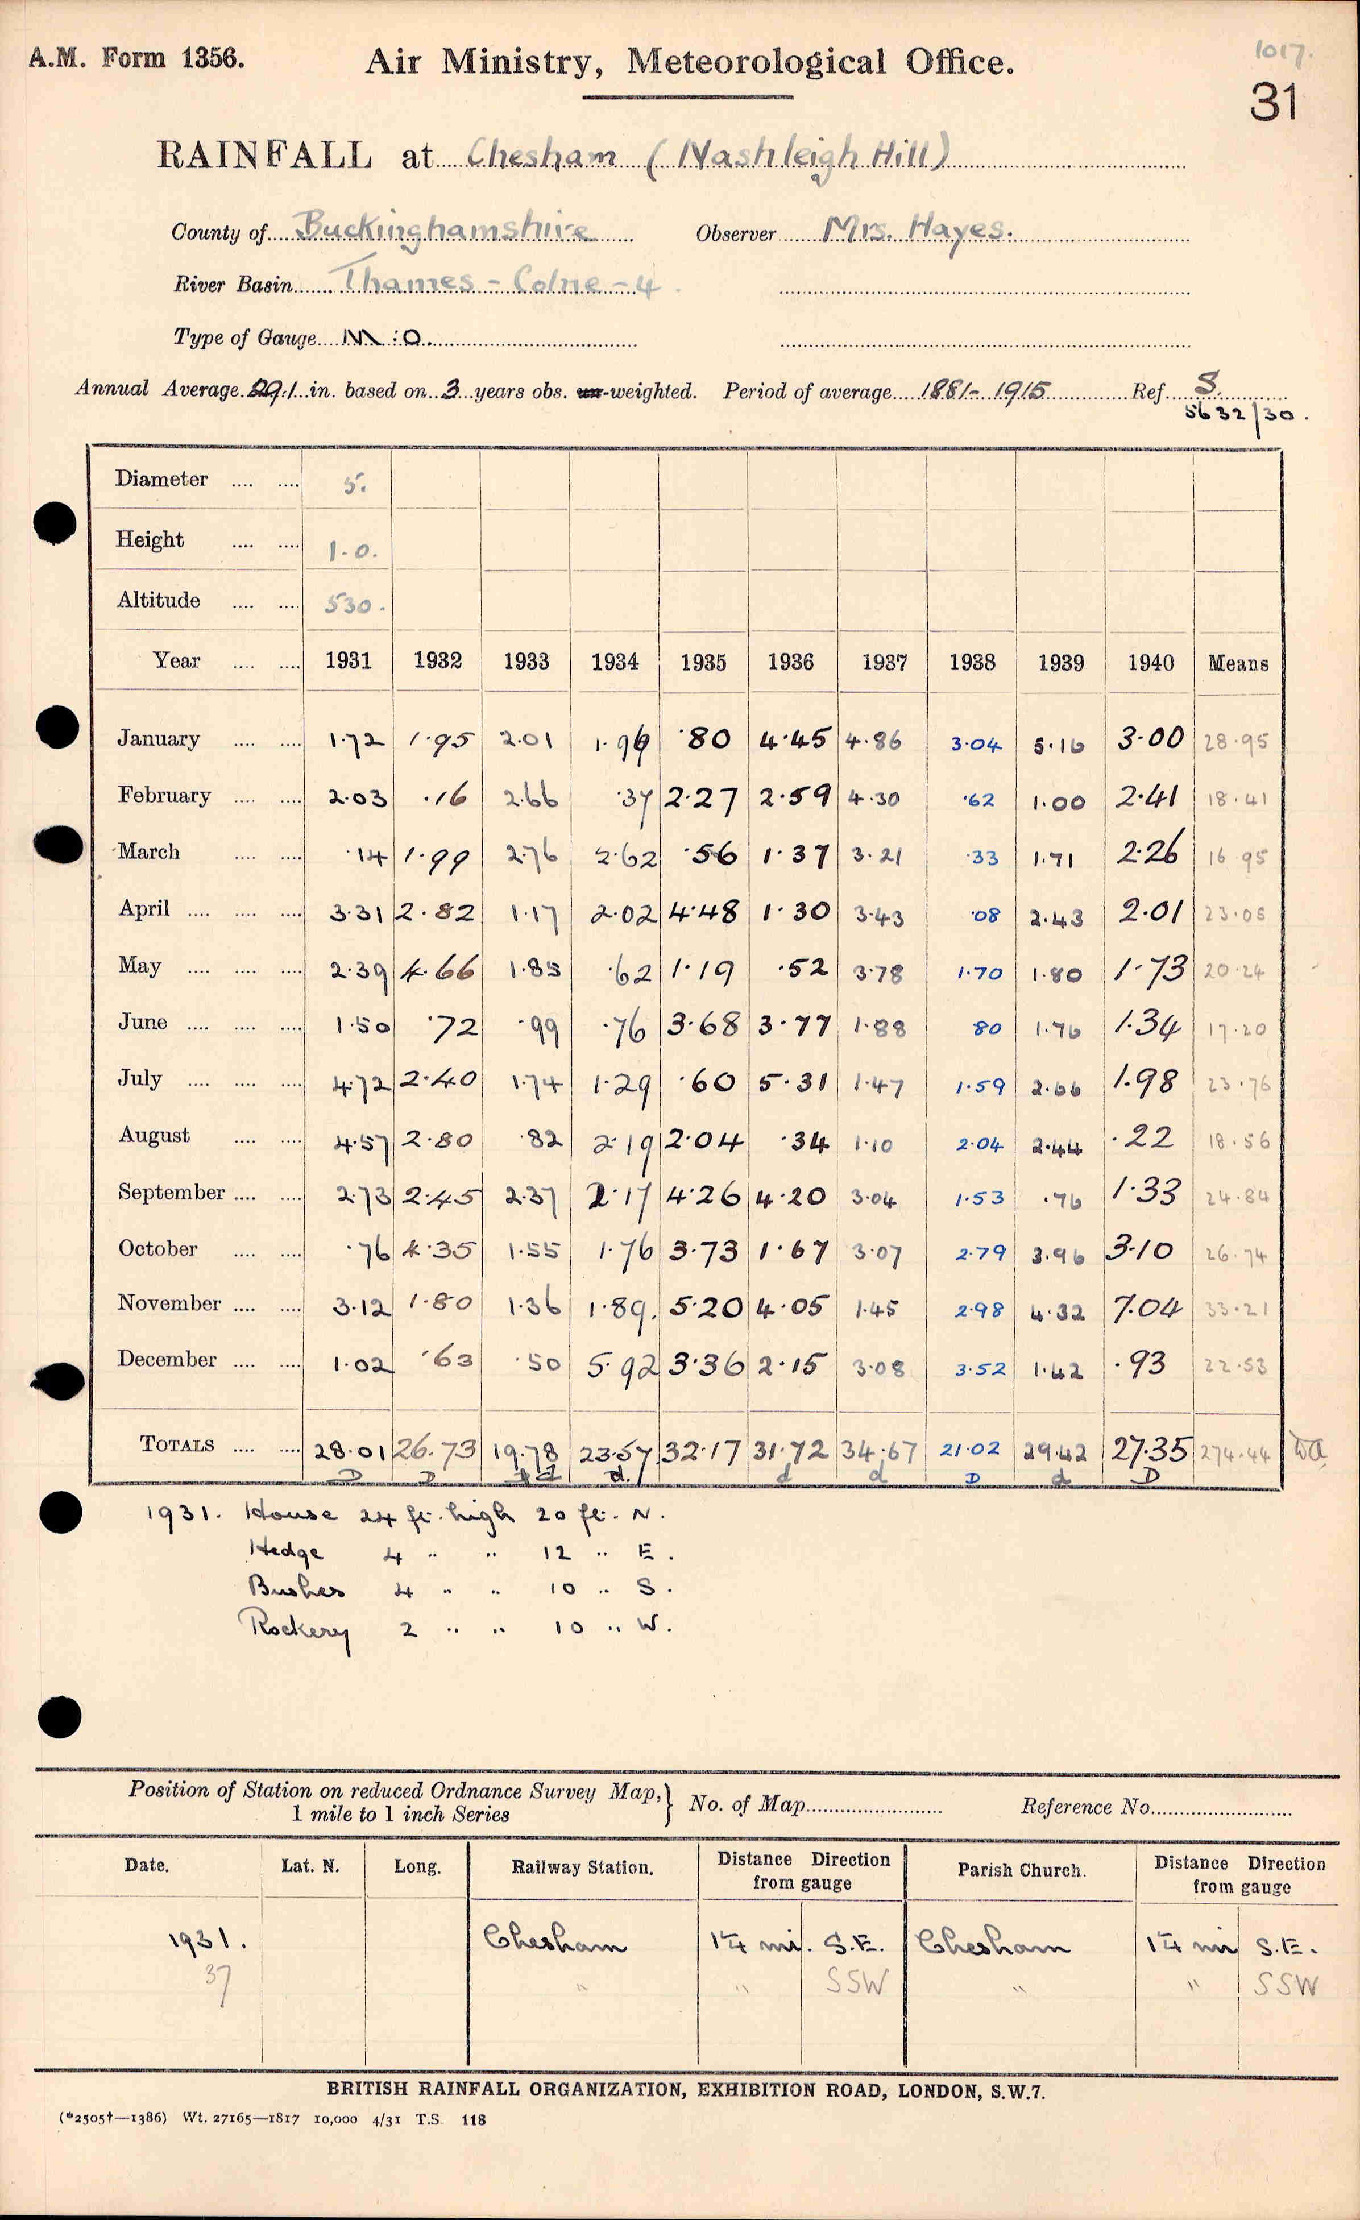 1017.
A.M. Form 1356. Air Ministry, Meteorological Office.
31
RAINFALL at Chesham (Nashleigh Hill)
County of Buckinghamshire Observer Mrs. Hayes.
River Basin Thames - Colne - 4.
Type of Gauge M.O.
Annual Average 29.1 in. based on 3 years obs. un-weighted. Period of average 1881-1915 Ref S.
5632/30.
Diameter .... .... 5.
Height .... .... 1.0.
Altitude .... .... 530.
Year .... .... 1931 1932 1933 1934 1935 1936 1937 1938 1939 1940 Means
January .... .... 1.72 1.95 2.01 1.96 .80 4.45 4.86 3.04 5.16 3.00 28.95
February .... .... 2.03 .16 2.66 .37 2.27 2.59 4.30 .62 1.00 2.41 18.41
March .... .... .14 1.99 2.76 2.62 .56 1.37 3.21 .33 1.71 2.26 16.95
April .... .... .... 3.31 2.82 1.17 2.02 4.48 1.30 3.43 .08 2.43 2.01 23.05
May .... .... .... 2.39 4.66 1.85 .62 1.19 .52 3.78 1.70 1.80 1.73 20.24
June .... .... .... 1.50 .72 .99 .76 3.68 3.77 1.88 80 1.76 1.34 17.20
July .... .... .... 4.72 2.40 1.74 1.29 .60 5.31 1.47 1.59 2.66 1.98 23.76
August .... .... 4.57 2.80 .82 2.19 2.04 .34 1.10 2.04 2.44 .22 18.56
September .... .... 2.73 2.45 2.37 2.17 4.26 4.20 3.04 1.53 .76 1.33 24.84
October .... .... .76 4.35 1.55 1.76 3.73 1.67 3.07 2.79 3.96 3.10 26.74
November .... .... 3.12 1.80 1.36 1.89. 5.20 4.05 1.45 2.98 4.32 7.04 33.21
December .... .... 1.02 .63 .50 5.92 3.36 2.15 3.08 3.52 1.42 .93 22.53
TOTALS .... .... 28.01 26.73 19.78 23.57 32.17 31.72 34.67 21.02 29.42 27.35 274.44
D D d d. d d D d D
1931. House 24 ft. high 20 ft. N.
Hedge 4 " " 12 " E.
Bushes 4 " " 10 " S.
Rockery 2 " " 10 " W.
Position of Station on reduced Ordnance Survey Map,} No. of Map Reference No.
1 mile to 1 inch Series
Date. Lat. N. Long. Railway Station. Distance Direction from gauge Parish Church. Distance Direction from gauge
1931. Chesham 1¼ mi. S.E. Chesham 1¼ mi S.E.
37 " " SSW " " SSW
BRITISH RAINFALL ORGANIZATION, EXHIBITION ROAD, LONDON, S.W.7.
(*2505†—1386) Wt. 27165—1817 10,000 4/31 T.S. 118